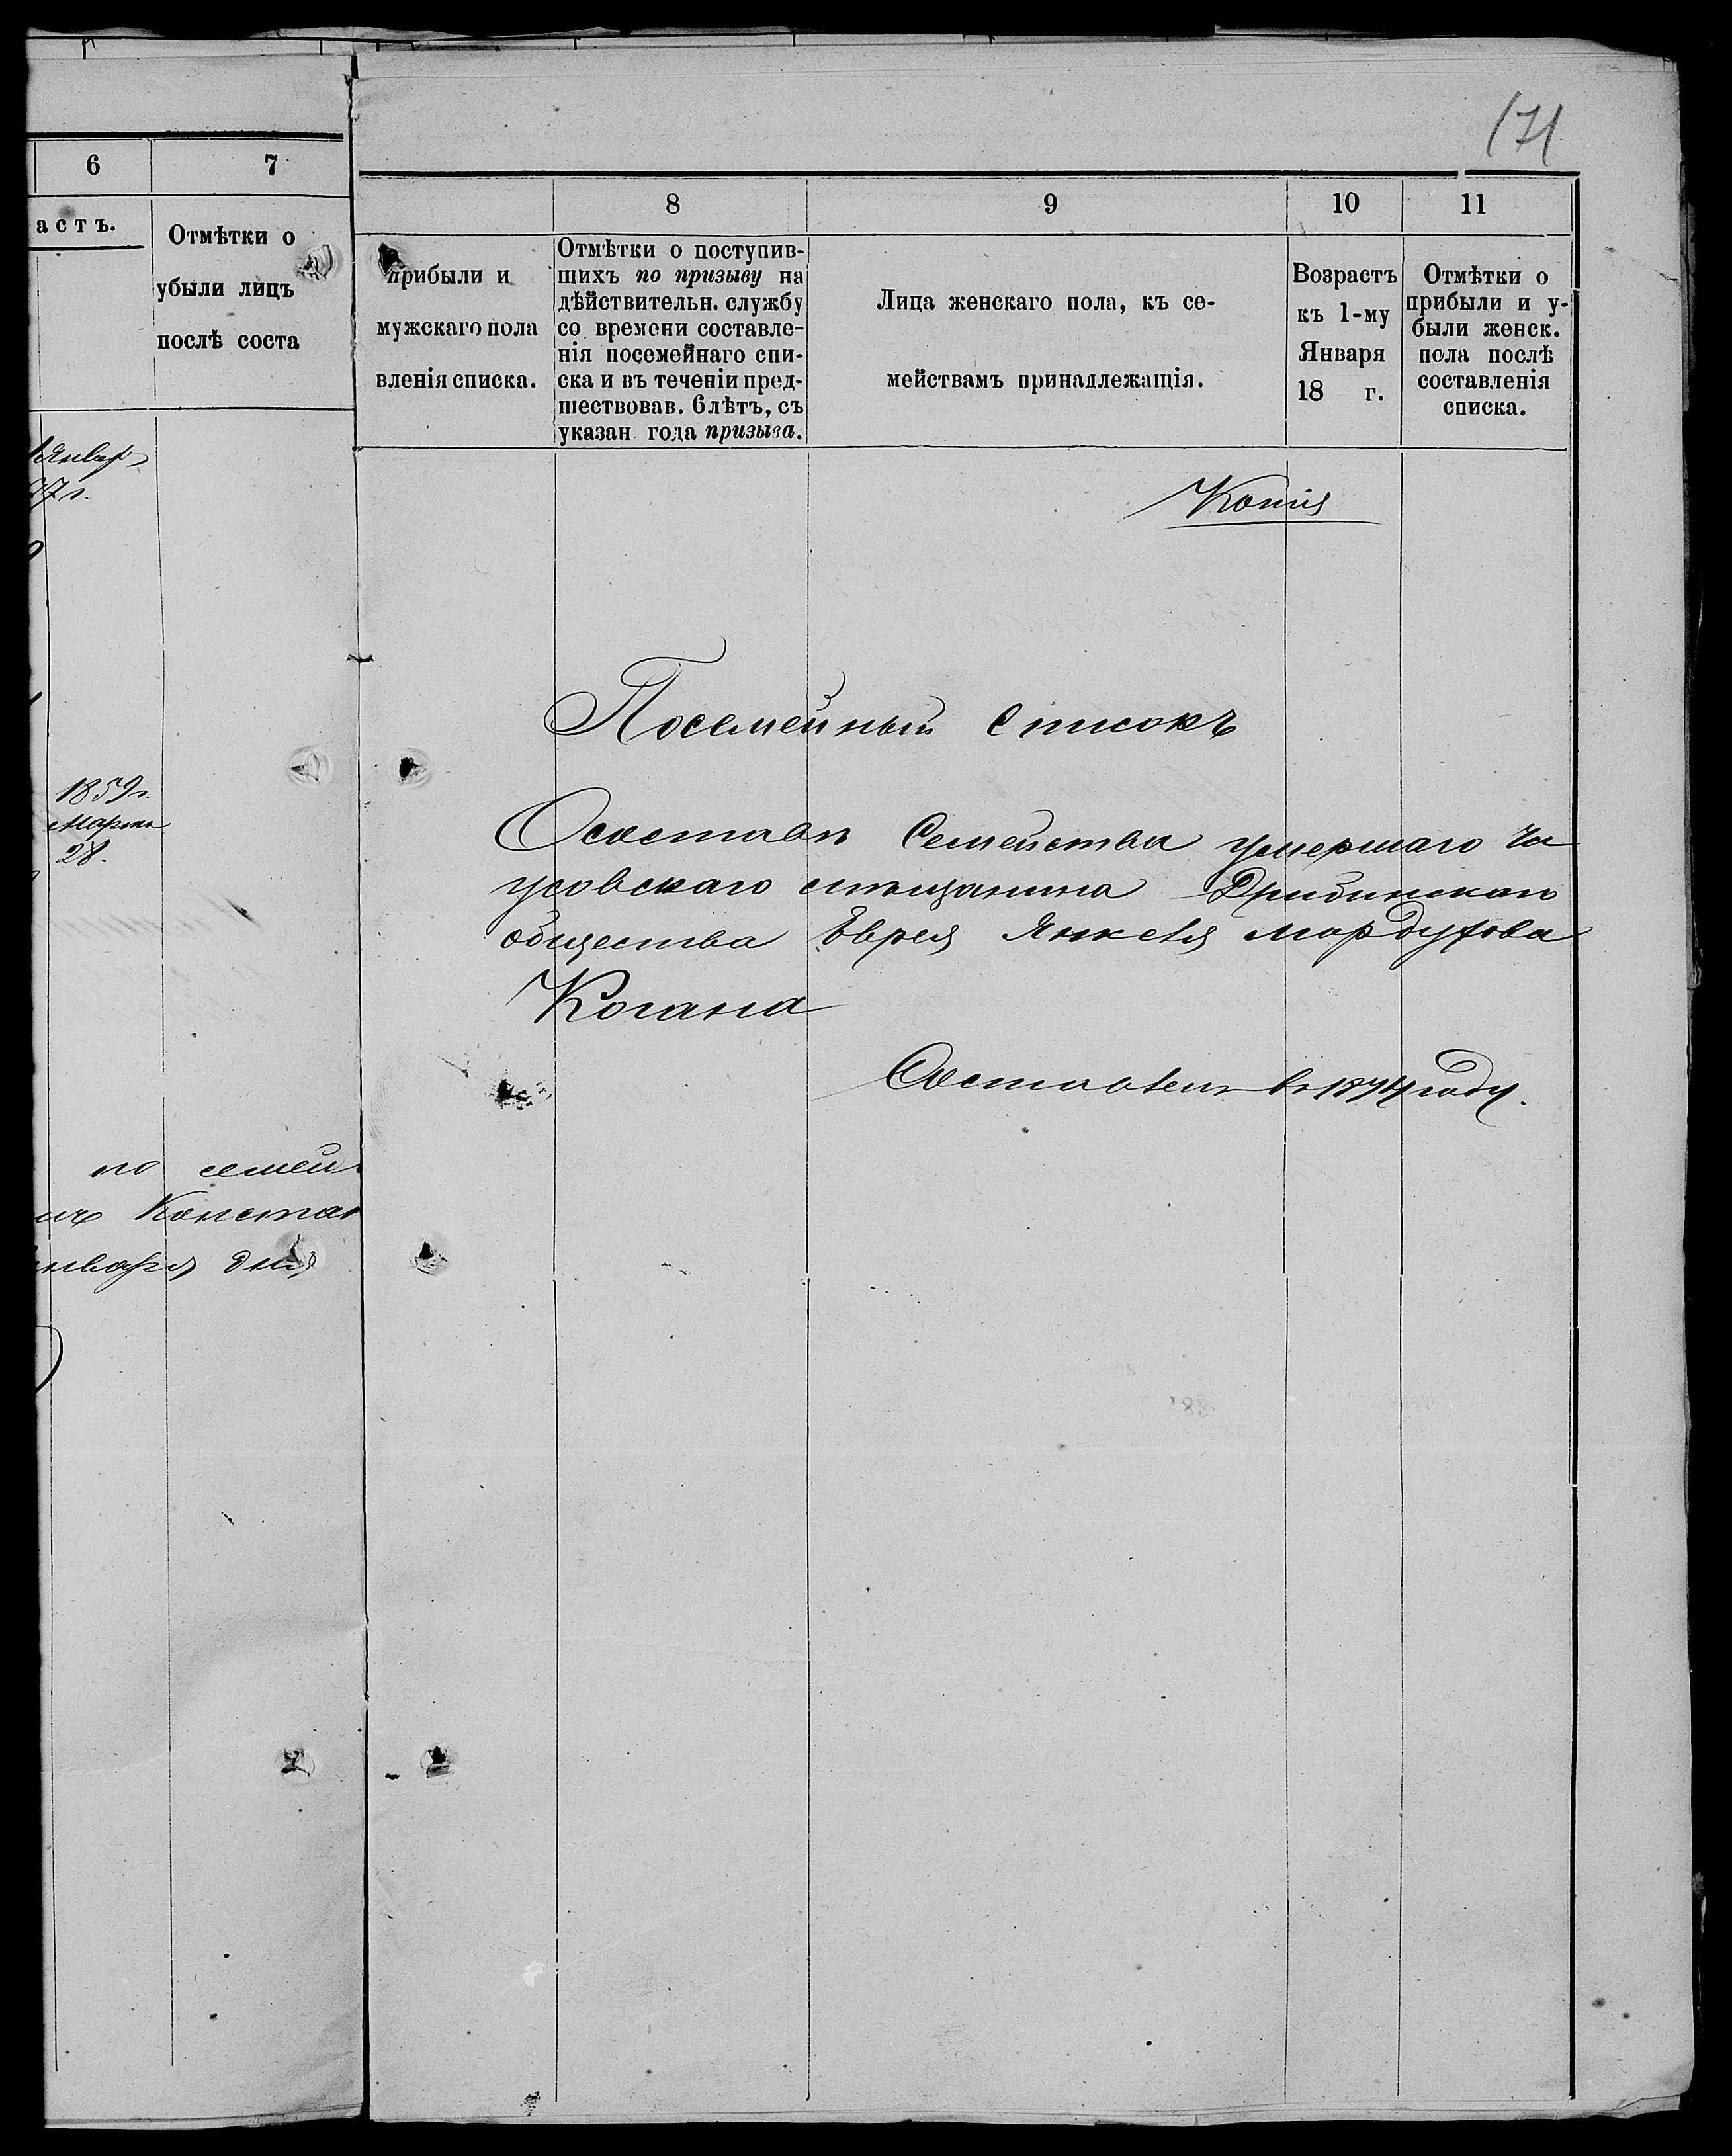 171
6 7
астъ.
Отмѣтки о
убыли лицъ
послѣ соста
Январ
77 г.
1859 г.
Марта
28.
по семей
Констан
нваря дня
8 9 10 11
прибыли и
мужскаго пола
вленія списка.
Отмѣтки о поступив-
шихъ по призыву на
дѣйствительн. службу
со времени составле-
нія посемейнаго спи-
ска и въ теченіи пред-
шествовав. 6 лѣтъ, съ
указан. года призыва.
Лица женскаго пола, къ се-
мействамъ принадлежащія.
Возрастъ
къ 1-му
Января
18 г.
Отмѣтки о
прибыли и у-
были женск.
пола послѣ
составленія
списка.
Копія
Посемейный Списокъ
О составѣ Семейства умершаго Ча
усовскаго мѣщанина Дрибинскаго
общества Еврея Янкеля Мордухова
Когана
Составленъ въ 1874 году.